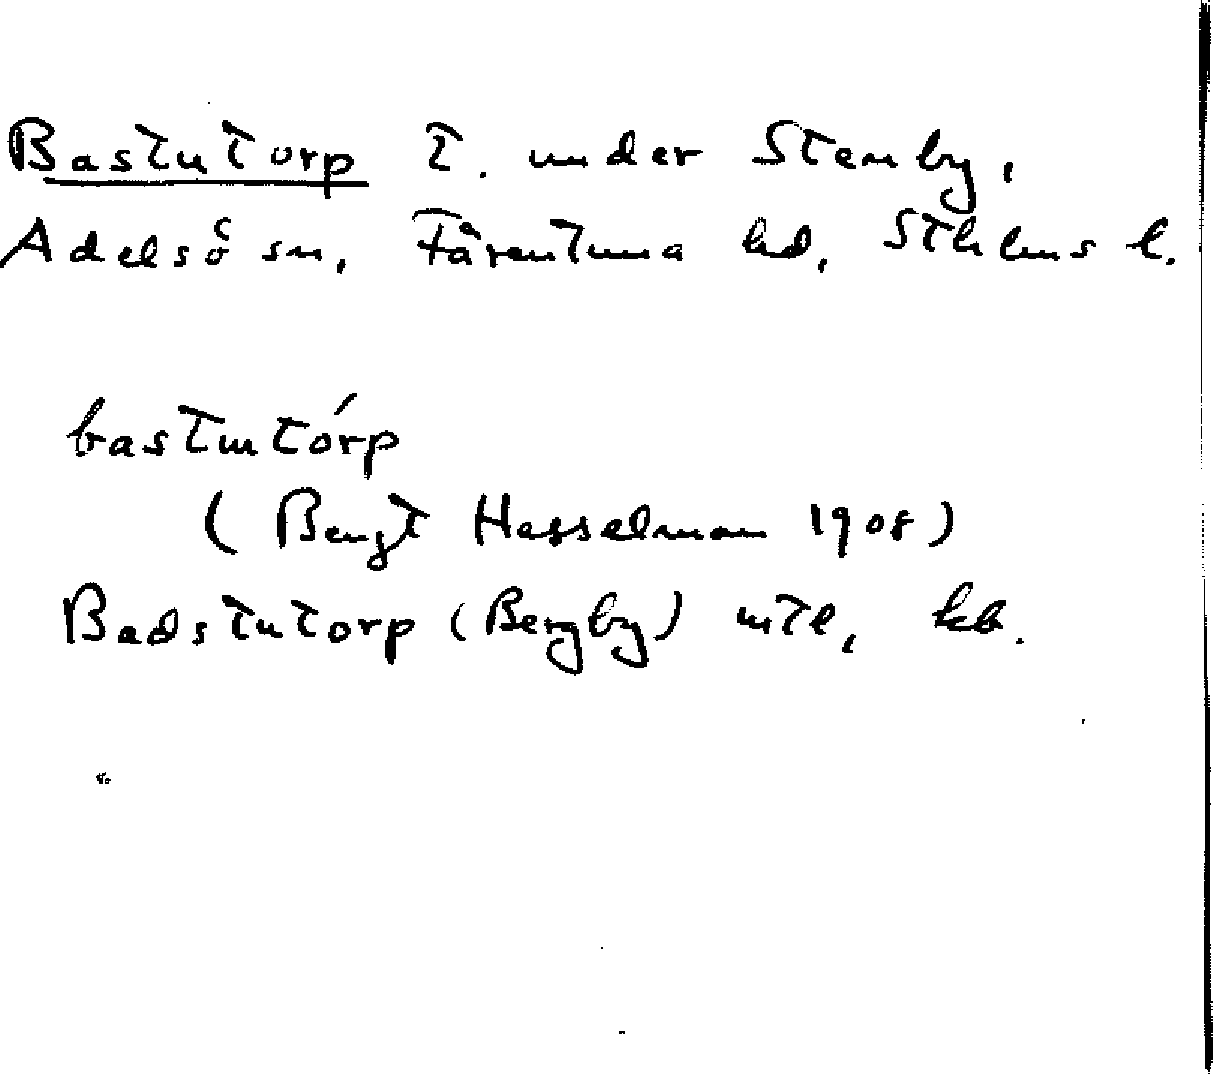 Bastutorp T. under Stenby,
Adelsö sn, Färentuna hd, Sthlms l.
bastutórp
(Bengt Hesselman 1908)
Badstutorp (Bergby) mtl, kb.